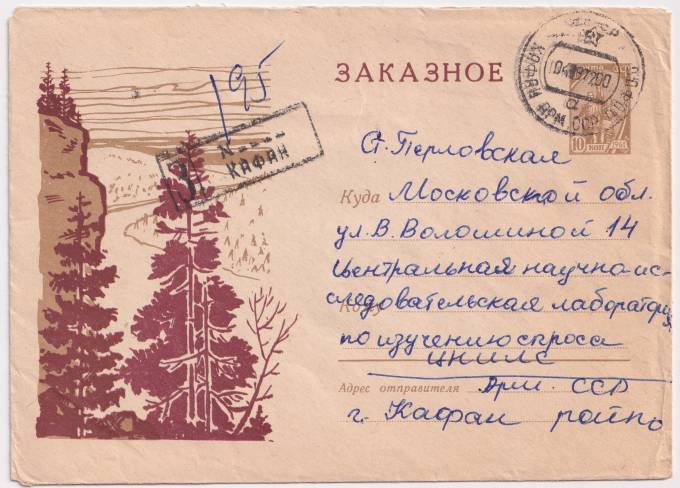 ЗАКАЗНОЕ
195
З №
КАФАН
КАФАН АРМ ССР
10 КОП
ст. Перловская
Куда Московской обл.
ул. В. Волошиной 14
Центральная научно-ис-
следовательская лаборатория
Кому
по изучению спроса
ЦНИЛС
Адрес отправителя Арм. ССР
г. Кафан райпо